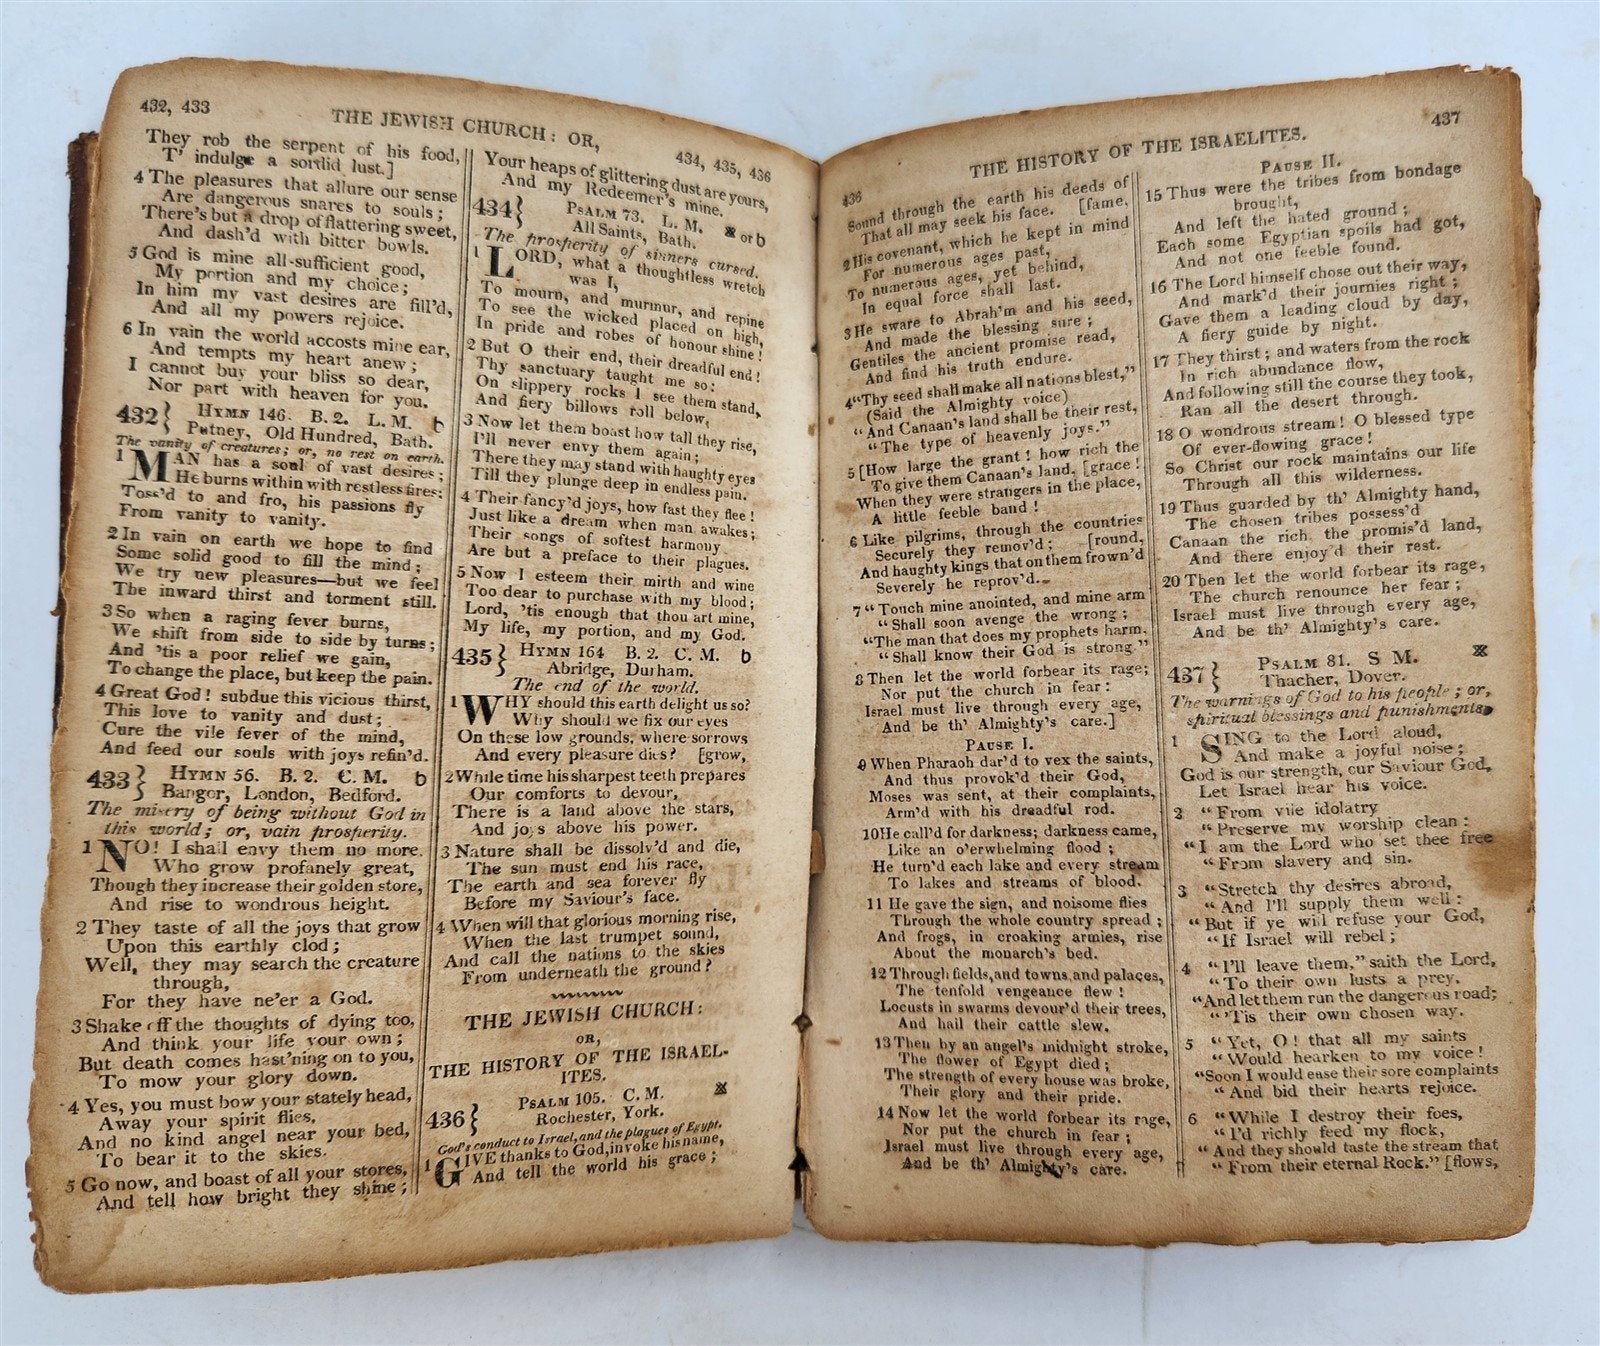 432, 433
THE JEWISH CHURCH: OR,
434, 435, 436
They rob the serpent of his food,
T' indulge a sordid lust.]
4 The pleasures that allure our sense
Are dangerous snares to souls;
There's but a drop of flattering sweet,
And dash'd with bitter bowls.
5 God is mine all-sufficient good,
My portion and my choice;
In him my vast desires are fill'd,
And all my powers rejoice.
6 In vain the world accosts mine ear,
And tempts my heart anew;
I cannot buy your bliss so dear,
Nor part with heaven for you.
432} HYMN 146. B. 2. L. M. b
Putney, Old Hundred, Bath.
The vanity of creatures; or, no rest on earth.
1 MAN has a soul of vast desires;
He burns within with restless fires:
Toss'd to and fro, his passions fly
From vanity to vanity.
2 In vain on earth we hope to find
Some solid good to fill the mind;
We try new pleasures—but we feel
The inward thirst and torment still.
3 So when a raging fever burns,
We shift from side to side by turns;
And 'tis a poor relief we gain,
To change the place, but keep the pain.
4 Great God! subdue this vicious thirst,
This love to vanity and dust;
Cure the vile fever of the mind,
And feed our souls with joys refin'd.
433} HYMN 56. B. 2. C. M. b
Bangor, London, Bedford.
The misery of being without God in
this world; or, vain prosperity.
1 NO! I shall envy them no more
Who grow profanely great,
Though they increase their golden store,
And rise to wondrous height.
2 They taste of all the joys that grow
Upon this earthly clod;
Well, they may search the creature
through,
For they have ne'er a God.
3 Shake off the thoughts of dying too,
And think your life your own;
But death comes hast'ning on to you,
To mow your glory down.
4 Yes, you must bow your stately head,
Away your spirit flies,
And no kind angel near your bed,
To bear it to the skies.
5 Go now, and boast of all your stores,
And tell how bright they shine;
Your heaps of glittering dust are yours,
And my Redeemer's mine.
434} PSALM 73. L. M.
All Saints, Bath. ※ or b
The prosperity of sinners cursed.
1 LORD, what a thoughtless wretch
was I,
To mourn, and murmur, and repine
To see the wicked placed on high,
In pride and robes of honour shine!
2 But O their end, their dreadful end!
Thy sanctuary taught me so:
On slippery rocks I see them stand,
And fiery billows roll below,
3 Now let them boast how tall they rise,
I'll never envy them again;
There they may stand with haughty eyes
Till they plunge deep in endless pain.
4 Their fancy'd joys, how fast they flee!
Just like a dream when man awakes;
Their songs of softest harmony
Are but a preface to their plagues.
5 Now I esteem their mirth and wine
Too dear to purchase with my blood;
Lord, 'tis enough that thou art mine,
My life, my portion, and my God.
435} HYMN 164 B. 2. C. M. b
Abridge, Durham.
The end of the world.
1 WHY should this earth delight us so?
Why should we fix our eyes
On these low grounds, where sorrows
And every pleasure dies? [grow,
2 While time his sharpest teeth prepares
Our comforts to devour,
There is a land above the stars,
And joys above his power.
3 Nature shall be dissolv'd and die,
The sun must end his race,
The earth and sea forever fly
Before my Saviour's face.
4 When will that glorious morning rise,
When the last trumpet sound,
And call the nations to the skies
From underneath the ground?
THE JEWISH CHURCH:
OR,
THE HISTORY OF THE ISRAEL-
ITES.
436} PSALM 105. C. M. ※
Rochester, York.
God's conduct to Israel, and the plagues of Egypt.
1 GIVE thanks to God, invoke his name,
And tell the world his grace;
THE HISTORY OF THE ISRAELITES.
437
436
Sound through the earth his deeds of
That all may seek his face. [fame,
2 His covenant, which he kept in mind
For numerous ages past,
To numerous ages, yet behind,
In equal force shall last.
3 He sware to Abrah'm and his seed,
And made the blessing sure;
Gentiles the ancient promise read,
And find his truth endure.
4 "Thy seed shall make all nations blest,"
(Said the Almighty voice)
"And Canaan's land shall be their rest,
"The type of heavenly joys."
5 [How large the grant! how rich the
To give them Canaan's land, [grace!
When they were strangers in the place,
A little feeble band!
6 Like pilgrims, through the countries
Securely they remov'd; [round,
And haughty kings that on them frown'd
Severely he reprov'd.
7 "Touch mine anointed, and mine arm
"Shall soon avenge the wrong;
"The man that does my prophets harm,
"Shall know their God is strong."
8 Then let the world forbear its rage;
Nor put the church in fear:
Israel must live through every age,
And be th' Almighty's care.]
PAUSE I.
9 When Pharaoh dar'd to vex the saints,
And thus provok'd their God,
Moses was sent, at their complaints,
Arm'd with his dreadful rod.
10 He call'd for darkness; darkness came,
Like an o'erwhelming flood;
He turn'd each lake and every stream
To lakes and streams of blood.
11 He gave the sign, and noisome flies
Through the whole country spread;
And frogs, in croaking armies, rise
About the monarch's bed.
12 Through fields, and towns and palaces,
The tenfold vengeance flew!
Locusts in swarms devour'd their trees,
And hail their cattle slew.
13 Then by an angel's midnight stroke,
The flower of Egypt died;
The strength of every house was broke,
Their glory and their pride.
14 Now let the world forbear its rage,
Nor put the church in fear;
Israel must live through every age,
And be th' Almighty's care.
PAUSE II.
15 Thus were the tribes from bondage
brought,
And left the hated ground;
Each some Egyptian spoils had got,
And not one feeble found.
16 The Lord himself chose out their way,
And mark'd their journies right;
Gave them a leading cloud by day,
A fiery guide by night.
17 They thirst; and waters from the rock
In rich abundance flow,
And following still the course they took,
Ran all the desert through.
18 O wondrous stream! O blessed type
Of ever-flowing grace!
So Christ our rock maintains our life
Through all this wilderness.
19 Thus guarded by th' Almighty hand,
The chosen tribes possess'd
Canaan the rich, the promis'd land,
And there enjoy'd their rest.
20 Then let the world forbear its rage,
The church renounce her fear;
Israel must live through every age,
And be th' Almighty's care.
437} PSALM 81. S M. ※
Thacher, Dover.
The warnings of God to his people; or,
spiritual blessings and punishments.
1 SING to the Lord aloud,
And make a joyful noise;
God is our strength, our Saviour God,
Let Israel hear his voice.
2 "From vile idolatry
"Preserve my worship clean:
"I am the Lord who set thee free
"From slavery and sin.
3 "Stretch thy desires abroad,
"And I'll supply them well:
"But if ye will refuse your God,
"If Israel will rebel;
4 "I'll leave them," saith the Lord,
"To their own lusts a prey,
"And let them run the dangerous road;
"'Tis their own chosen way.
5 "Yet, O! that all my saints
"Would hearken to my voice!
"Soon I would ease their sore complaints
"And bid their hearts rejoice.
6 "While I destroy their foes,
"I'd richly feed my flock,
"And they should taste the stream that
"From their eternal Rock." [flows,